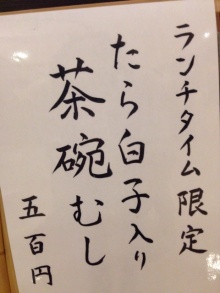 ランチタイム限定
たら白子入り
茶碗むし
五百円